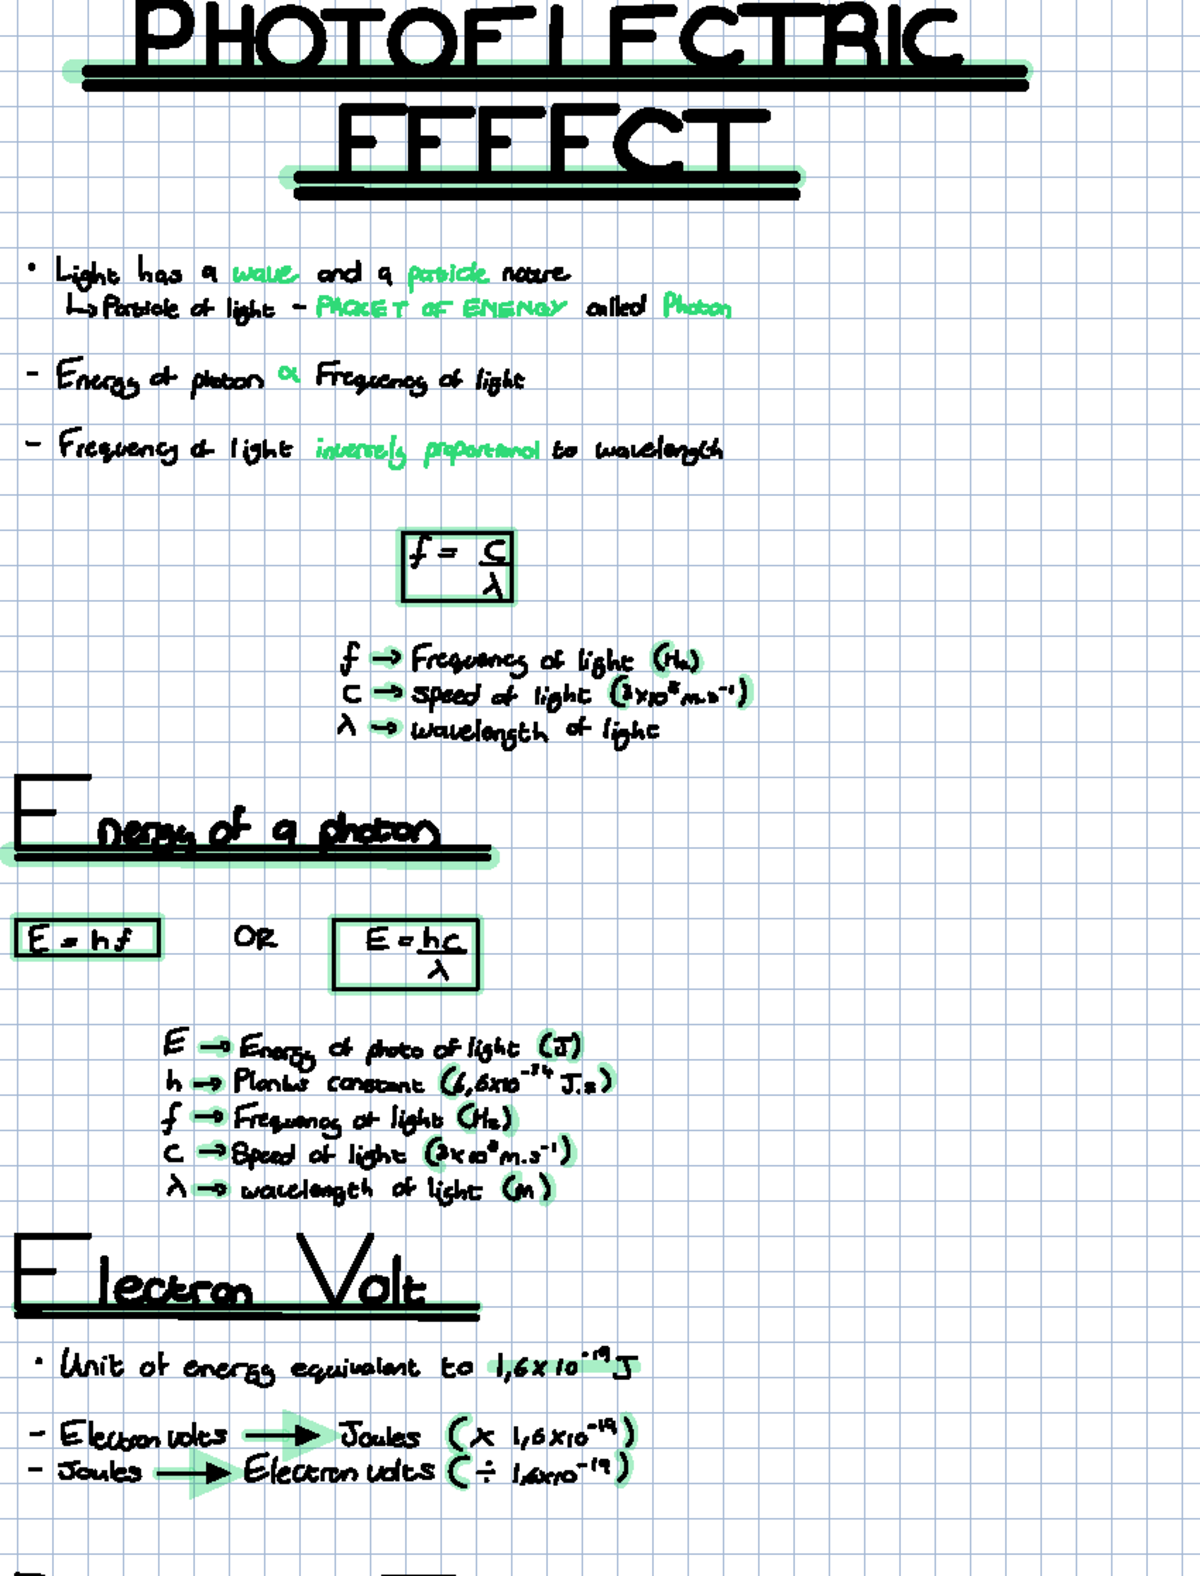 PHOTOELECTRIC
EFFECT
• Light has a wave and a particle nature
↳ Particle of light - PACKET OF ENERGY called Photon
- Energy of photon ∝ Frequency of light
- Frequency of light inversely proportional to wavelength
f = c/λ
f → Frequency of light (Hz)
c → speed of light (3x10⁸m.s⁻¹)
λ → wavelength of light
Energy of a photon
E = hf OR E = hc/λ
E → Energy of photo of light (J)
h → Planks constant (6,6x10⁻³⁴ J.s)
f → Frequency of light (Hz)
c → Speed of light (3x10⁸m.s⁻¹)
λ → wavelength of light (m)
Electron Volt
• Unit of energy equivalent to 1,6x10⁻¹⁹J
- Electron volts → Joules (x 1,6x10⁻¹⁹)
- Joules → Electron volts (÷ 1,6x10⁻¹⁹)